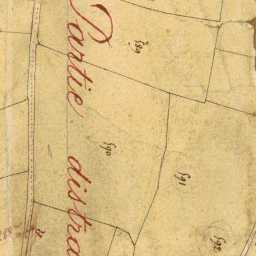 Partie distra
589
590
591
592